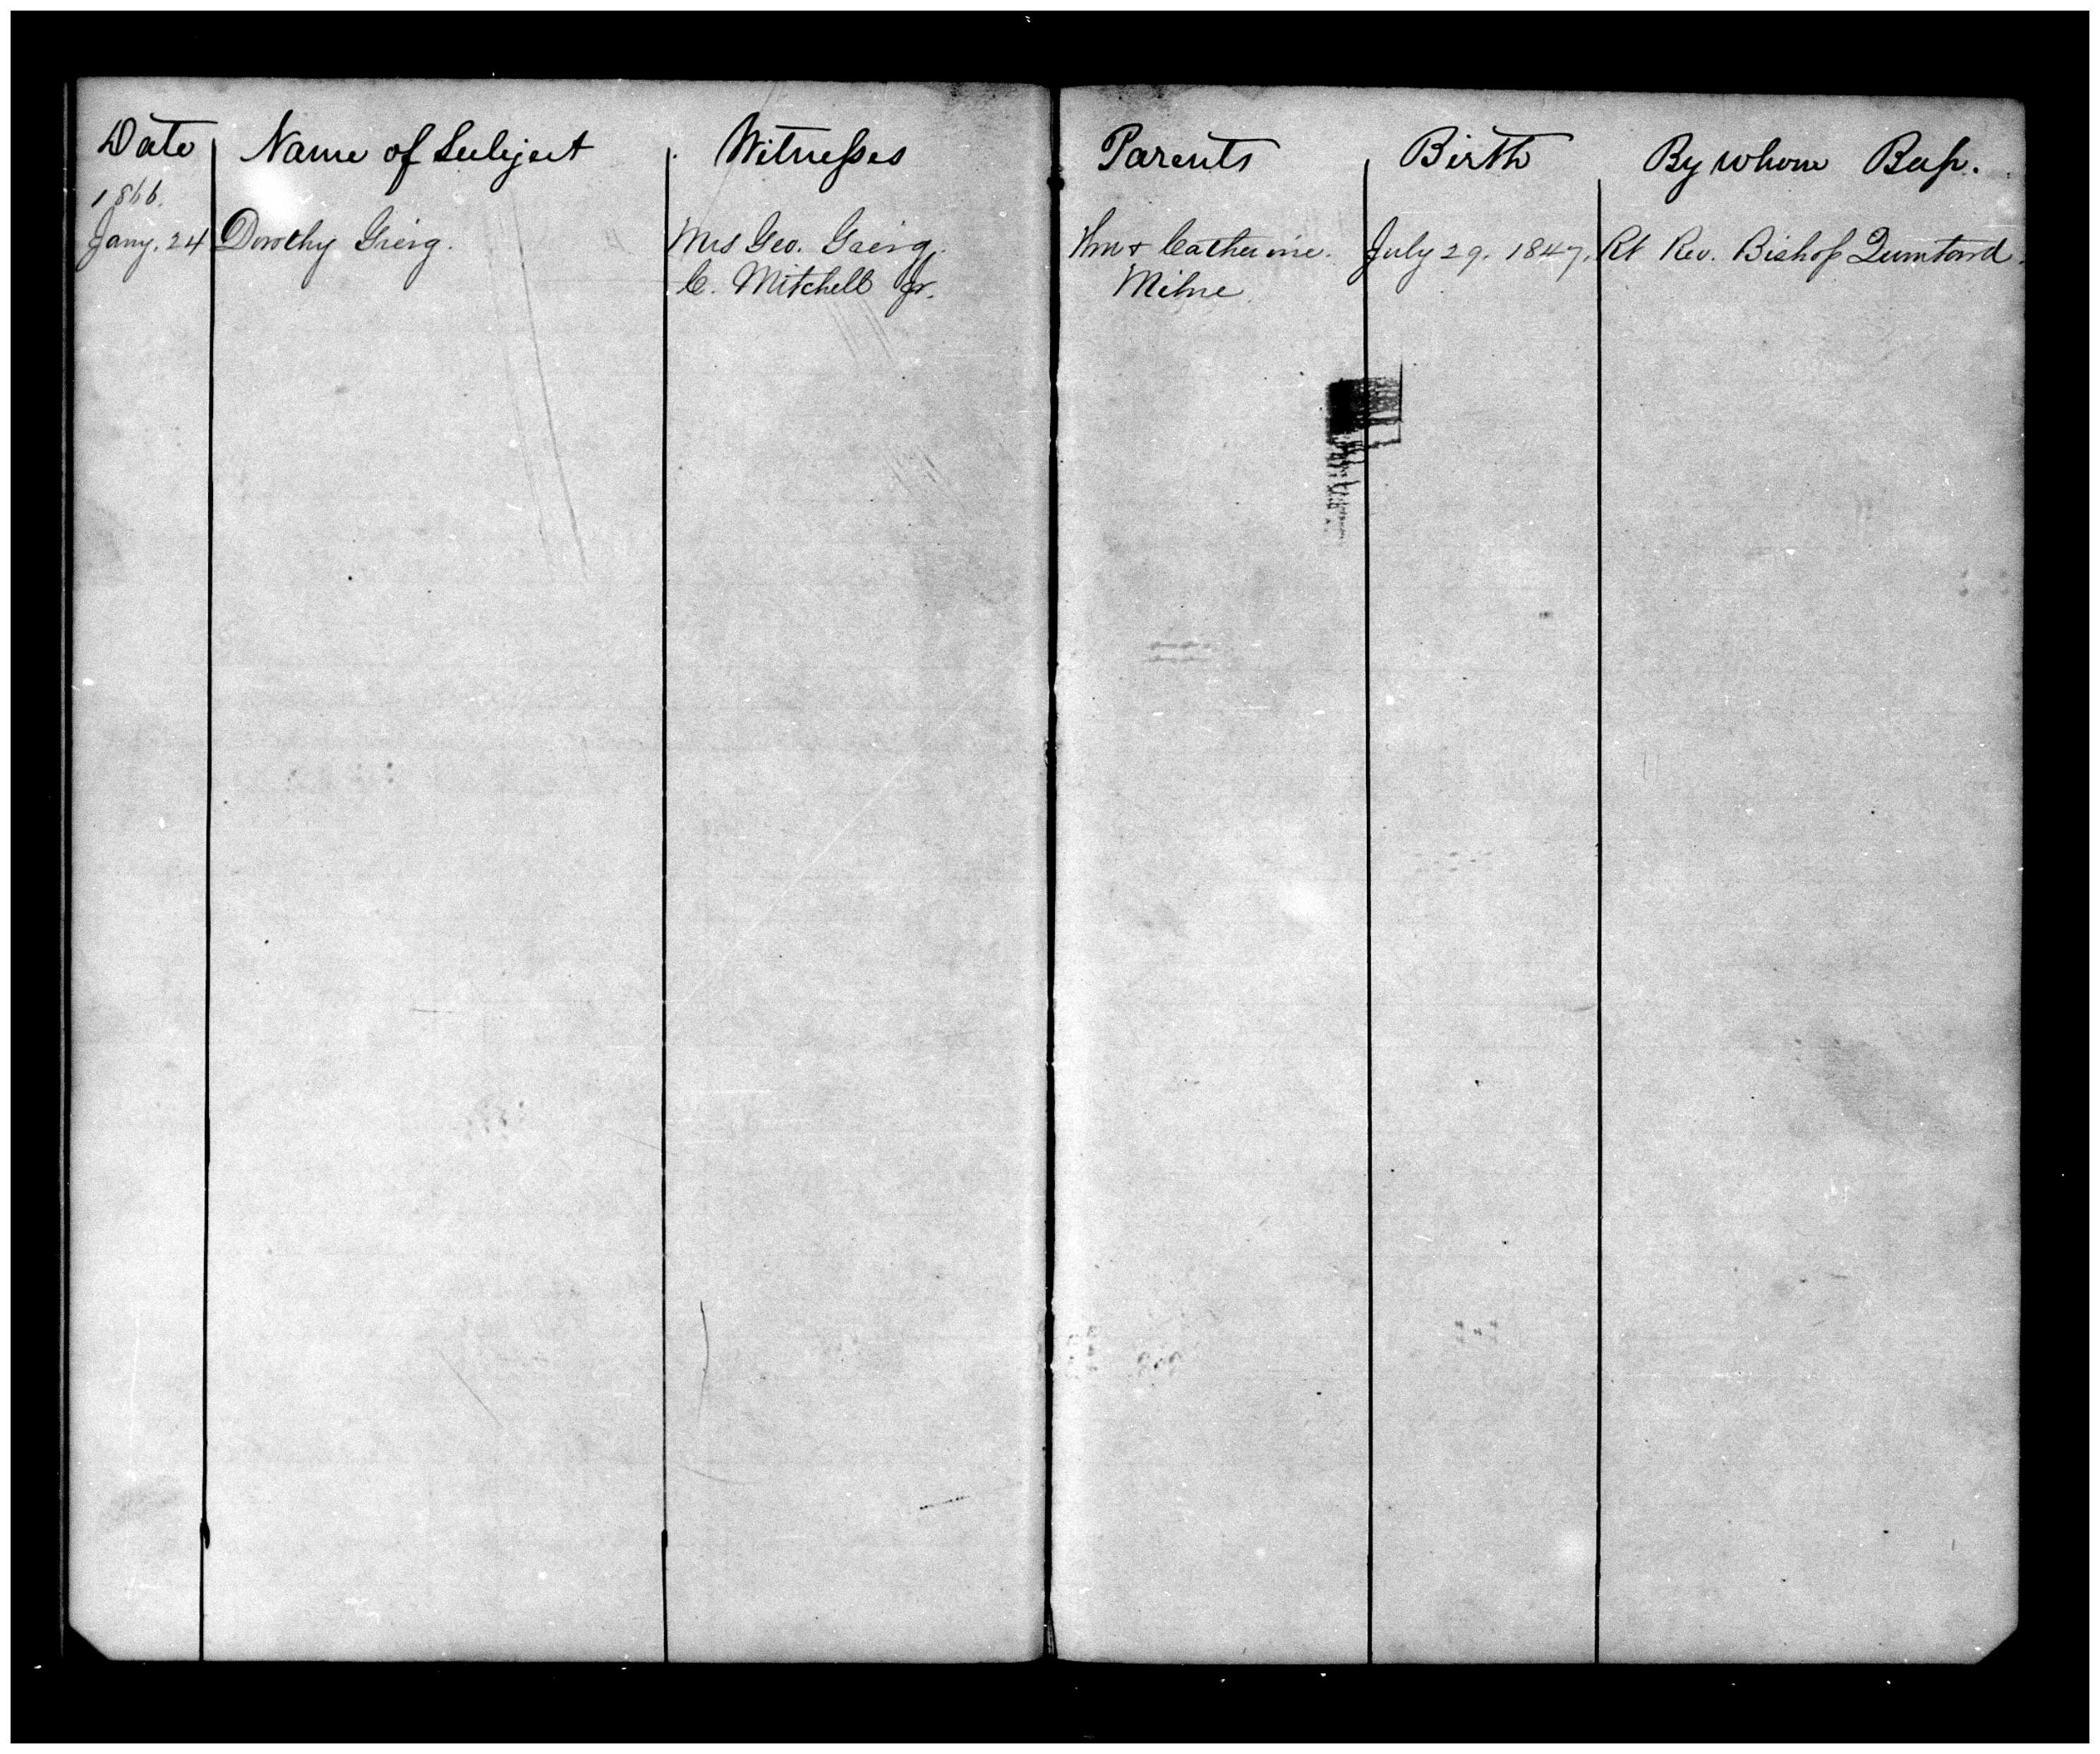 Date Name of Subject Witnesses Parents Birth By whom Bap.
1866.
Jany. 24 Dorothy Grieg. Mrs Geo. Grieg. Wm & Catherine. July 29. 1847. Rt Rev. Bishop Quintard.
C. Mitchell Jr. Milne